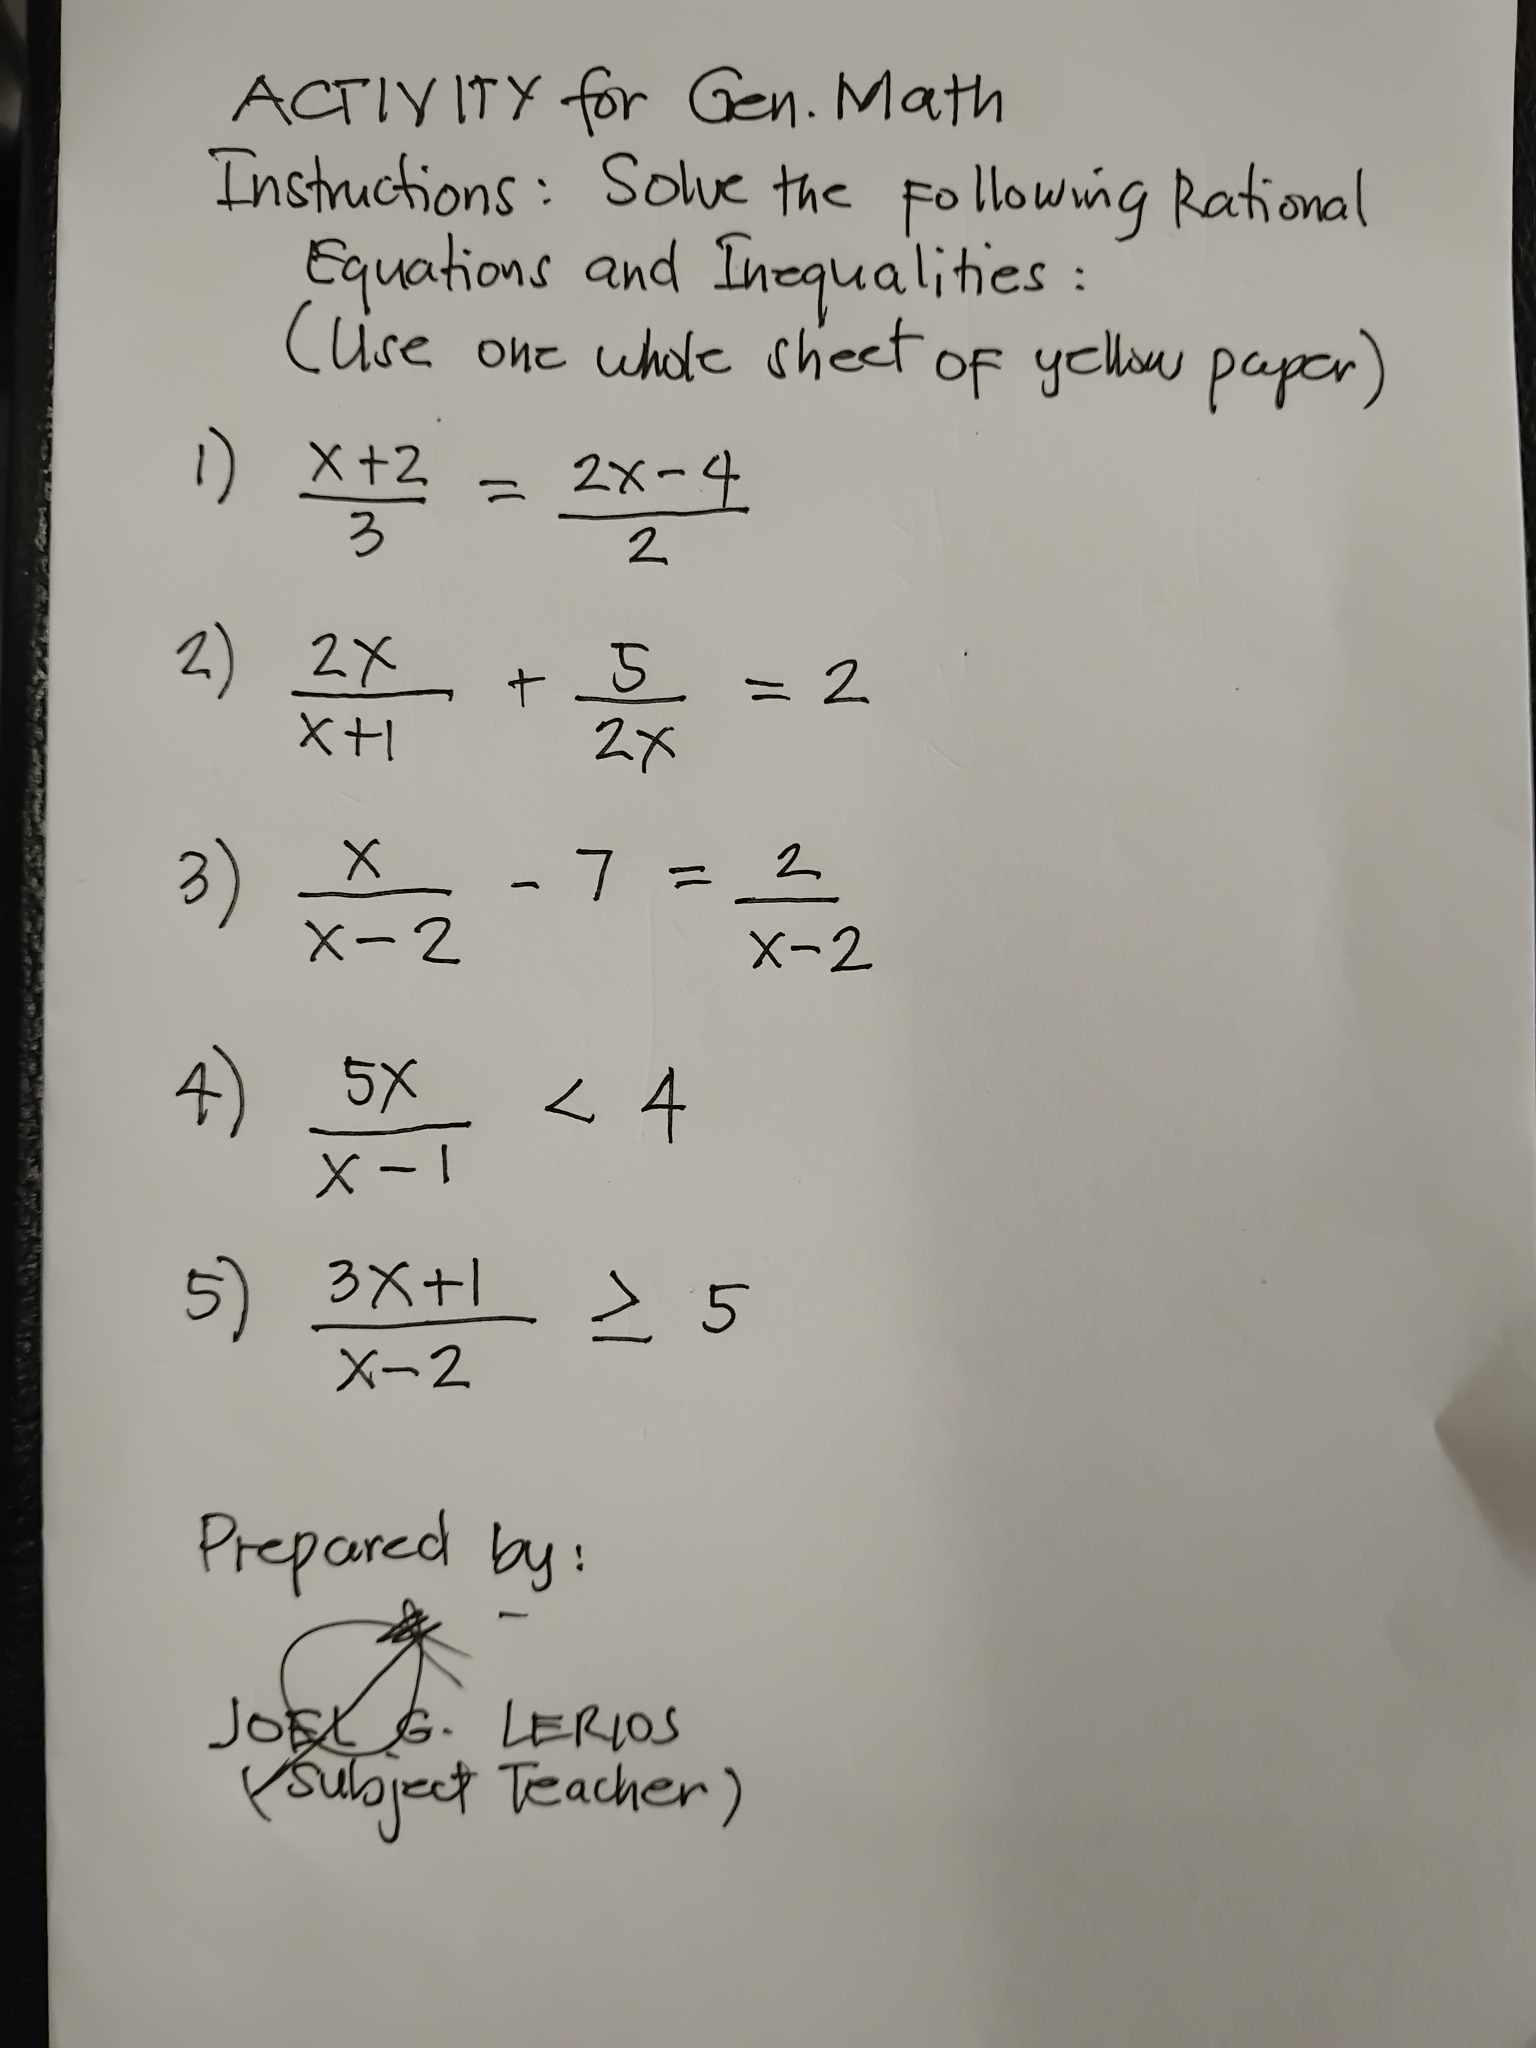 ACTIVITY for Gen. Math
Instructions: Solve the Following Rational
Equations and Inequalities:
(Use one whole sheet of yellow paper)
1) x+2/3 = 2x-4/2
2) 2x/x+1 + 5/2x = 2
3) x/x-2 - 7 = 2/x-2
4) 5x/x-1 < 4
5) 3x+1/x-2 ≥ 5
Prepared by:
JOEL G. LERIOS
(Subject Teacher)